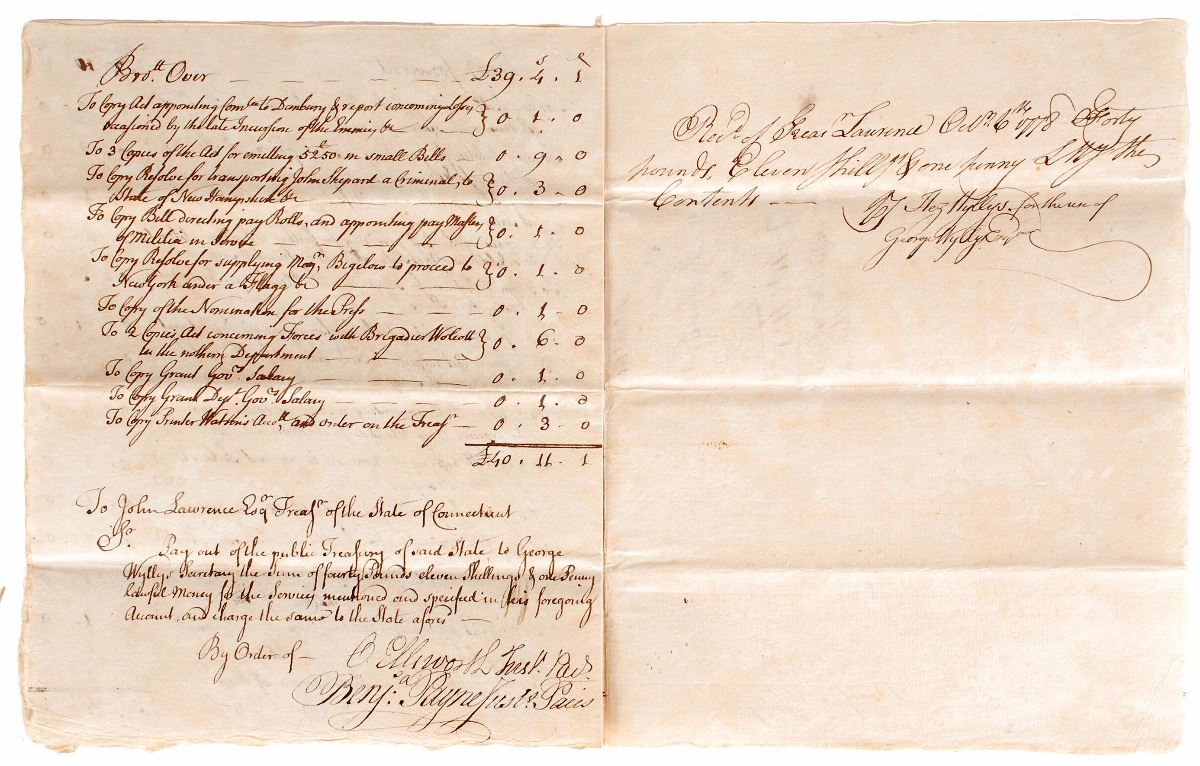 Bro.tt Over — — — — — £39 . 4 . 1
To Copy Act appointing Com.tee to Danbury & report concerning losses } 0 . 1 . 0
occasioned by the late Incursion of the Enemy &c
To 3 Copies of the Act for emitting in small Bills 0 . 9 - 0
To Copy Resolve for transporting John Shepard a Criminal, to } 0 . 3 - 0
State of New Hampshire &c
To Copy Bill directing pay Rolls, and appointing pay Masters } 0 . 1 . 0
of Militia in
To Copy Resolve for supplying Maj.r Bigelow to proceed to } 0 . 1 . 0
New York under a Flagg &c
To Copy of the Nomination for the Press — — — 0 . 1 . 0
To 2 Copies Act concerning Forces with Brigadier Wolcott } 0 . 6 - 0
in the nothern Deppartment
To Copy Grant Gov.rs Salary — — — 0 . 1 . 0
To Copy Grant Dep.y Gov.rs Salary — — — 0 . 1 . 0
To Copy Printer Watson's Acco.tt and order on the Treas.r — 0 . 3 - 0
£40 . 11 - 1
To John Lawrence Esq.r Treas.r of the State of Connecticut
S.r
Pay out of the public Treasury of said State to George
Wyllys Secretary the Sum of fourty Pounds eleven Shillings & one Penny
lawful Money for the Services mentioned and specified in this foregoing
Account, and charge the same to the State afores.d —
By Order of —
O Ellsworth Just. Pac.s
Benj.a Payne Just.o Pacis
Rec.d of Treas.r Lawrence Oct.r 6.th 1778 Forty
pounds, Eleven Shill.gs & one penny the
Contents —
Hez. Wyllys, for the use of
George Wyllys Esq.r